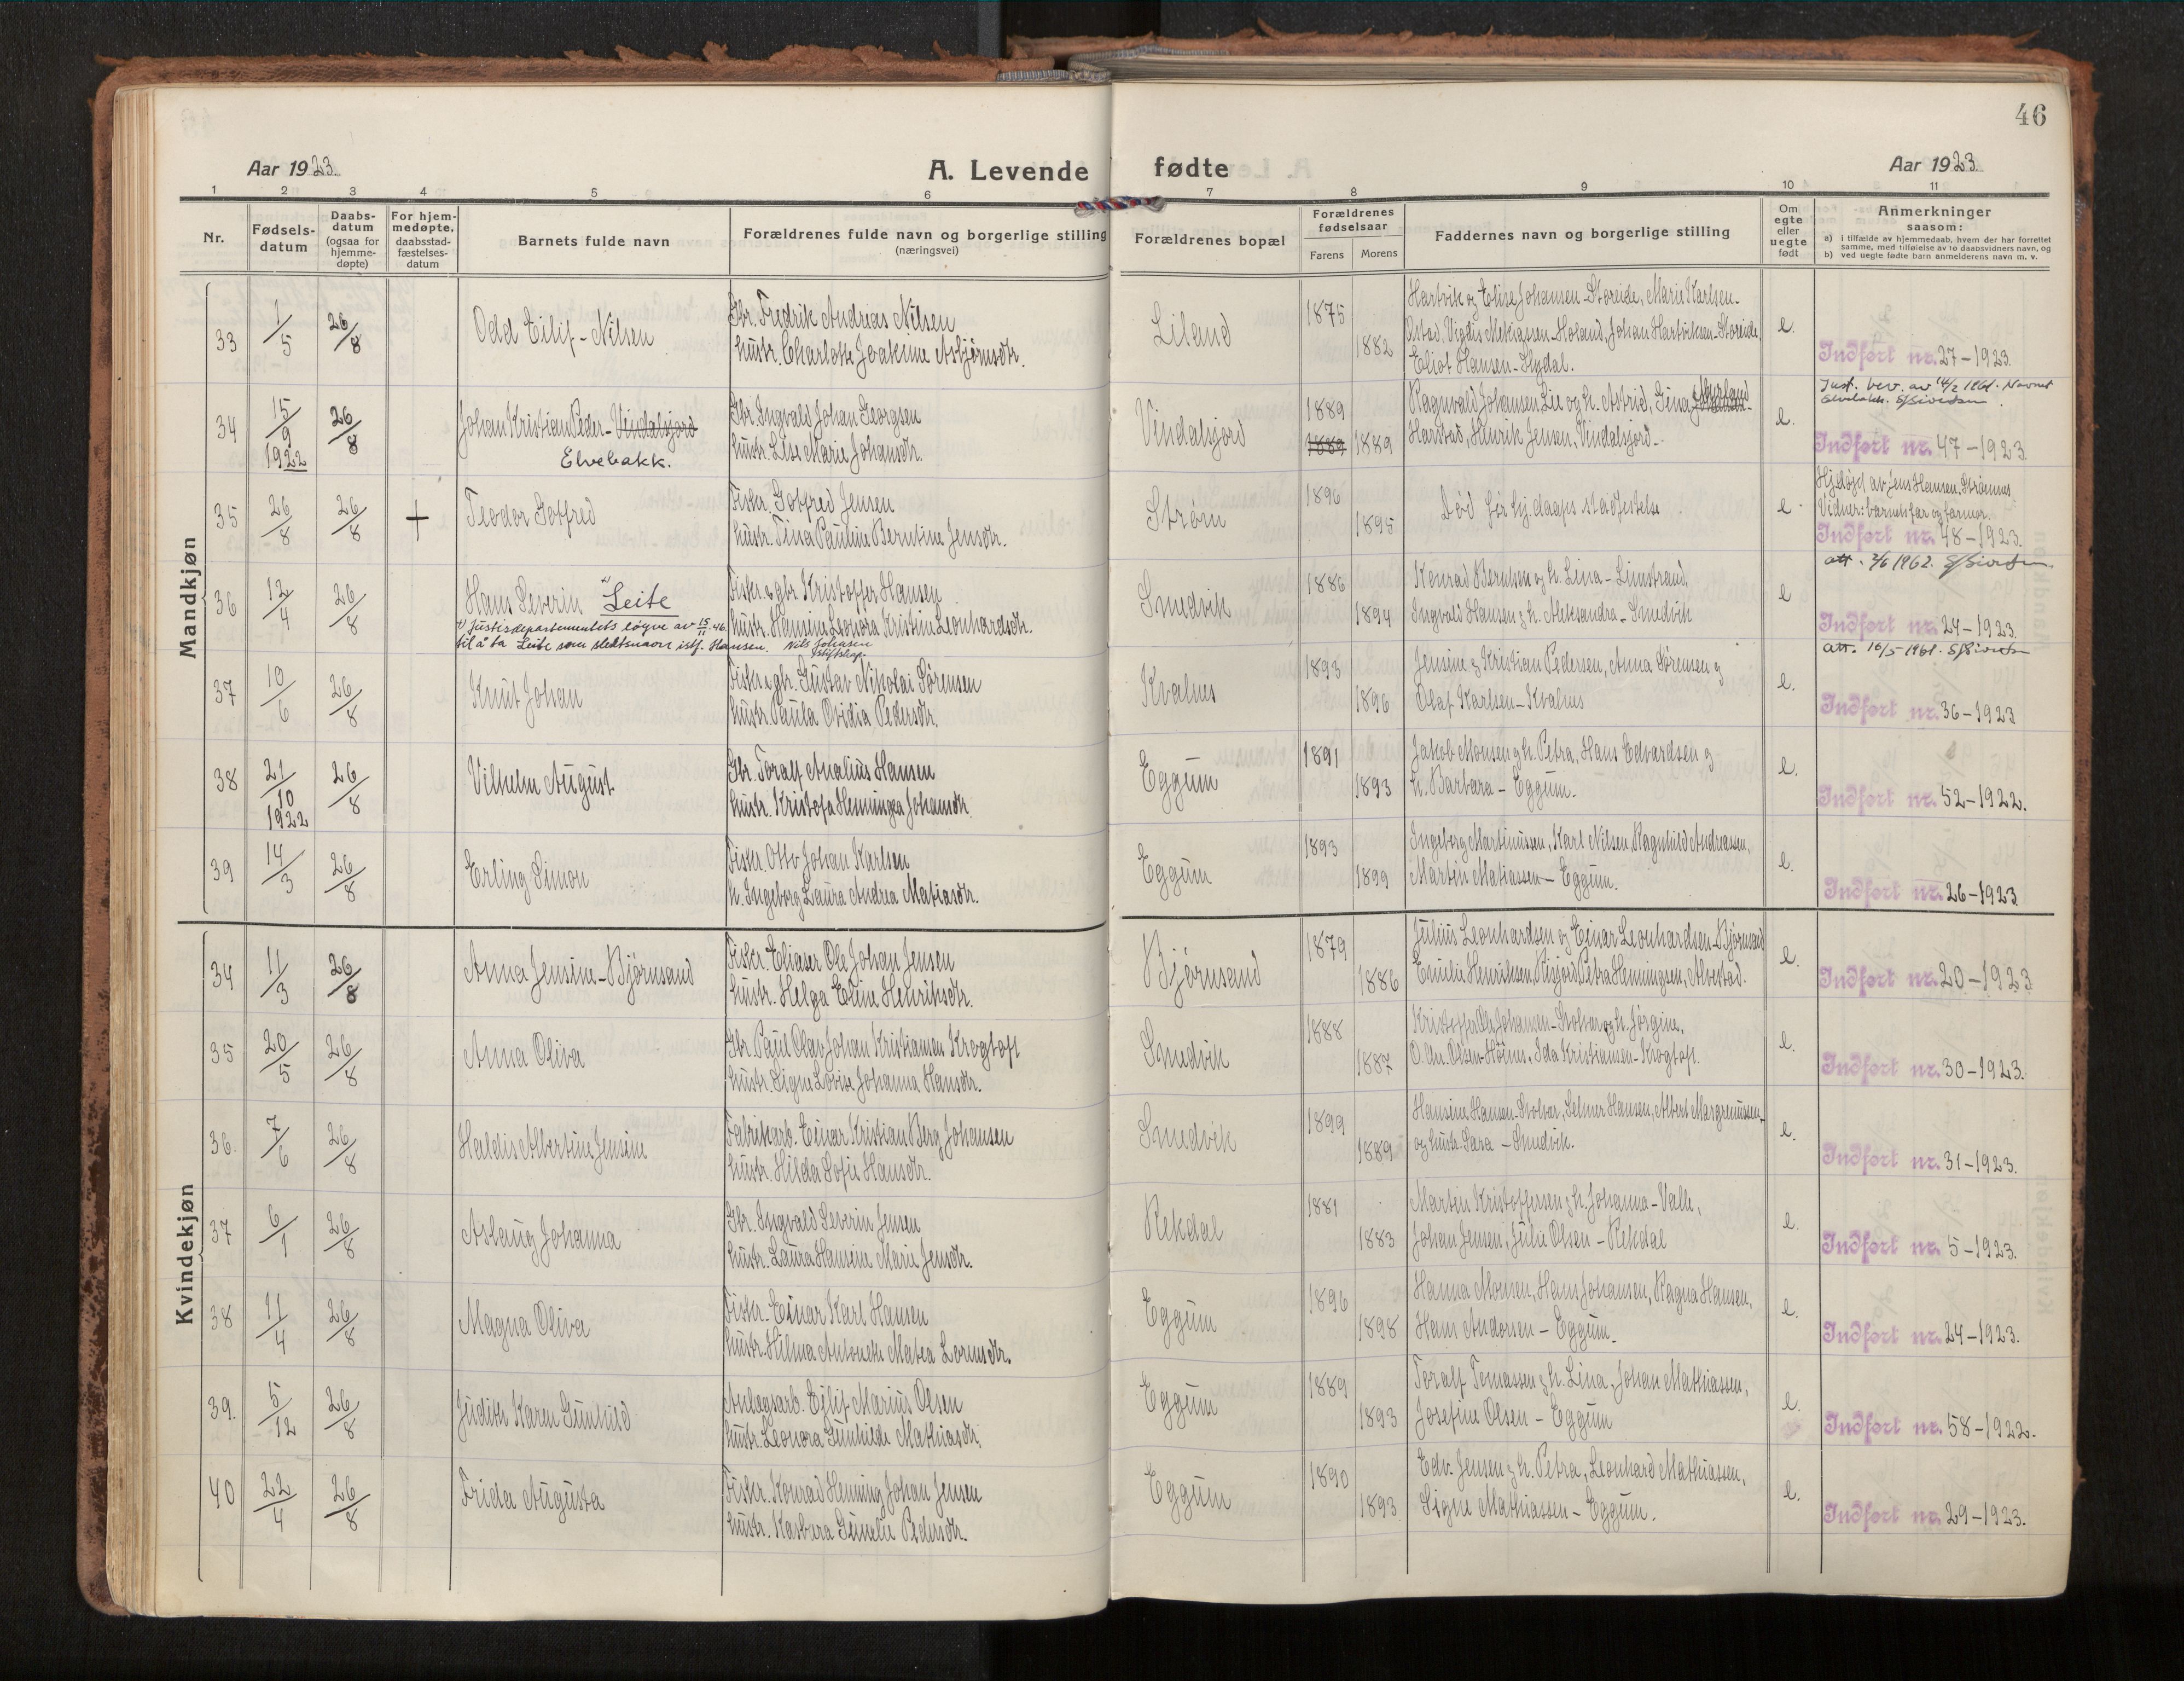 46
Aar 1923.
A. Levende fødte
Aar 1923.
1 2 3 4 5 6 7 8 9 10 11
Nr.
Fødsels-
datum
Daabs-
datum
(ogsaa for
hjemme-
døpte)
For hjem-
medøpte,
daabsstad-
fæstelses-
datum
Barnets fulde navn
Forældrenes fulde navn og borgerlige stilling
(næringsvei)
Forældrenes bopæl
Forældrenes
fødselsaar
Farens Morens
Faddernes navn og borgerlige stilling
Om
egte
eller
uegte
født
Anmerkninger
saasom:
a) i tilfælde av hjemmedaab, hvem der har forrettet
samme, med tilføielse av to daabsvidners navn, og
b) ved uegte fødte barn anmelderens navn m. v.
Mandkjøn
33 1/5 26/8 Odd Eilif - Nilsen
Gbr. Fredrik Andreas Nilsen
hustr. Charlotte Joakime Asbjørnsdtr.
Liland 1875 1882
Hartvik og Elise Johansen - Storeide, Marie Karlsen -
Johan Hartviksen - Storeide,
Eliot Hansen -
e.
Indført nr. 27-1923.
34 15/9 1922 26/8 Johan Kristian Peder - Vindalsjord
Elvebakk.
Gbr. Ingvald Johan Georgsen
hustr. Marie Johansdtr.
Vindalsjord 1889 1889 1889
Ragnvald Johansen Lie og h. Astrid, Gina
Harstad, Henrik Jensen, Vindalsjord -
e.
Just. bev. av 14/2 1961. Navnet
Elvebakk. S/Sivertsen
Indført nr. 47-1923.
35 26/8 26/8 + Teodor Gotfred
Fiskr. Gotfred Jensen
hustr. Tina Pauline Berntine Jensdtr.
Strøm 1896 1895
Død før hj.daaps stadfestelse
e.
Hjdøpt av Jens Hansen, Strømnes
Vidner: barnets far og farmor.
Indført nr. 48-1923.
36 12/4 26/8 Hans Severin Leite
1) Justisdepartementets løyve av 15/11.46.
til å ta Leite som slektsnavn istf. Hansen. Nils Johansen
Fiskr. & gbr. Kristoffer Hansen
hustr. Hansine Leonora Kristine Leonhardsdtr.
Smedvik 1886 1894
Konrad Berntsen og h. Lina - Limstrand,
Ingvald Hansen & h. Aleksandra - Smedvik
e
att. 2/6 1962. S/Sivertsen
Indført nr. 24-1923.
37 10/6 26/8 Knut Johan
Fiskr. & gbr. Gustav Nikolai Sørensen
hustr. Paula Ovidia Pedersdtr.
Kvalnes 1893 1896
Jensine & Kristian Pedersen, Anna Sørensen og
Olaf Karlsen - Kvalnes
e.
att. 16/5-1961. S/Sivertsen
Indført nr. 36-1923
38 21/10 1922 26/8 Vilhelm August
Gbr. Toralf Analius Hansen
hustr. Kristofa Henningea Johansdtr.
Eggum 1891 1893
Jakob Monsen & h. Petra, Hans Edvardsen og
h. Barbara - Eggum.
e.
Indført nr. 52-1922.
39 14/3 26/8 Erling Simon
Fiskr. Otto Johan Karlsen
h. Ingeborg Laura Andrea Matiasdtr.
Eggum 1893 1899
Ingeborg Martinussen, Karl Nilsen, Ragnhild Andreassen,
Martin Matiassen - Eggum.
e.
Indført nr. 26-1923
Kvindekjøn
34 11/3 26/8 Anna Jensine - Bjørnsand
Fiskr. Eliaser Ole Johan Jensen
hustr. Helga Eline Henriksdtr.
Bjørnsand 1879 1886
Julius Leonhardsen og Einar Leonhardsen - Bjørnsand
Emilie Henriksen, Petra Henningsen, Alvestad.
e.
Indført nr. 20-1923
35 20/5 26/8 Anna Oliva
Gbr. Paul Olav Johan Kristiansen Krogtoft
hustr. Signe Lovise Johanna Hansdtr.
Smedvik 1888 1887
Kristoffer Ole Johansen - Svolvær og h. Jørgine,
O. An. Olsen - , Ida Kristiansen - Krogtoft.
e.
Indført nr. 30-1923.
36. 7/6 26/8 Haldis Albertine Jensine
Fabrikarb. Einar Kristian Berg Johansen
hustr. Hilda Sofie Hansdtr.
Smedvik 1899 1889
Hansine Hansen - Svolvær, Selmer Hansen, Albert Margrenussen -
og hustr. Sara - Smedvik.
e.
Indført nr. 31-1923.
37 6/1 26/8 Aslaug Johanna
Gbr. Ingvald Severin Jensen
hustr. Laura Hansine Marie Jensdtr.
Rekdal 1881 1883
Martin Kristoffersen & h. Johanna - Valle,
Johan Jensen, Julie Olsen - Rekdal
e.
Indført nr. 5-1923.
38 11/4 26/8 Magna Oliva
Fiskr. Einar Karl Hansen
hustr. Hilma Antonette Matea Lorensdtr.
Eggum 1896 1898
Hanna Monsen, Hans Johansen, Ragna Hansen,
Hans Andorsen - Eggum.
e.
Indført nr. 24-1923.
39. 5/12 26/8 Judith Karen Gunhild
Anlægsarb. Eilif Marius Olsen
hustr. Leonora Gunhilde Mathiasdtr.
Eggum 1889 1893
Toralf Tomassen & h. Lina, Johan Mathiassen,
Josefine Olsen - Eggum
e.
Indført nr. 58-1922.
40 22/4 26/8 Frida Augusta
Fiskr. Konrad Henning Johan Jensen
hustr. Barbara Gunelie Pedersdtr.
Eggum 1890 1893
Edv. Jensen & h. Petra, Leonhard Mathiassen,
Signe Mathiassen - Eggum.
e.
Indført nr. 29-1923.